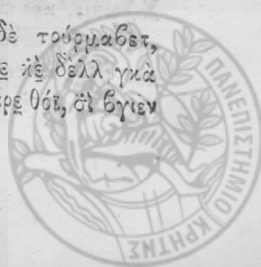 δὲ τούρμαβετ,
κὲ δὲλλ γκὰ
θόϊ, ὅϊ βγιὲν
ΠΑΝΕΠΙΣΤΗΜΙΟ ΚΡΗΤΗΣ